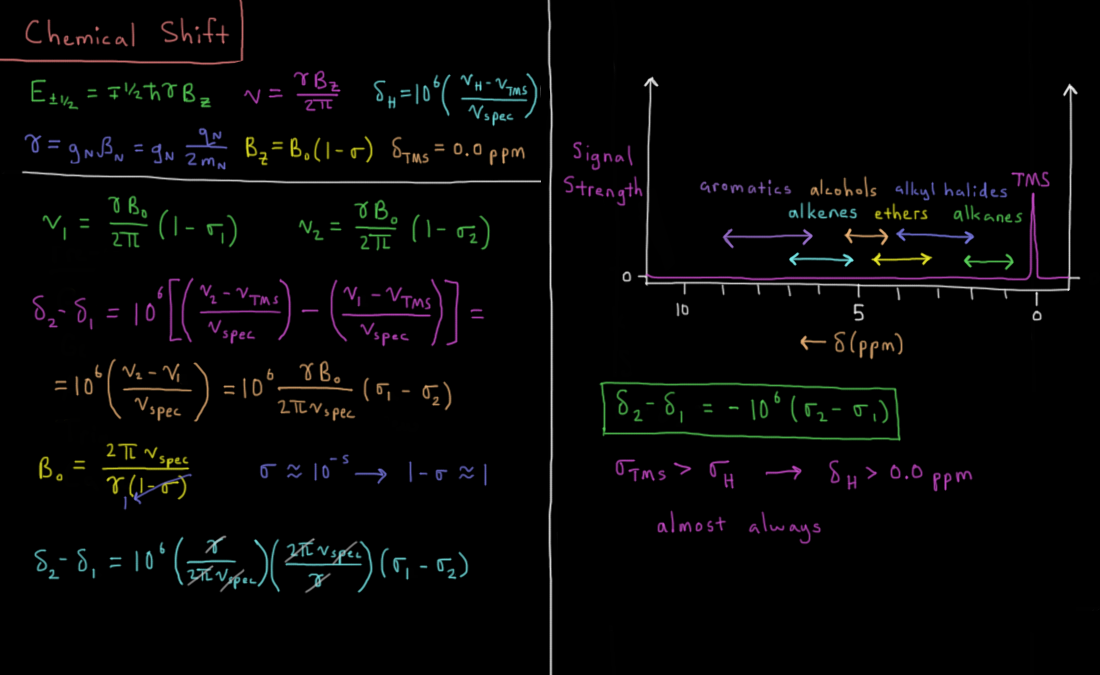 Chemical Shift
E±1/2 = ∓1/2 ħγB_z   ν = γB_z / 2π   δ_H = 10^6 ( (ν_H − ν_TMS) / ν_spec )
γ = g_N β_N = g_N q_N / 2m_N   B_z = B_0(1−σ)   δ_TMS = 0.0 ppm
ν_1 = γB_0 / 2π (1−σ_1)   ν_2 = γB_0 / 2π (1−σ_2)
δ_2 − δ_1 = 10^6 [ ( (ν_2 − ν_TMS) / ν_spec ) − ( (ν_1 − ν_TMS) / ν_spec ) ] =
= 10^6 ( (ν_2 − ν_1) / ν_spec ) = 10^6 γB_0 / 2πν_spec (σ_1 − σ_2)
B_0 = 2πν_spec / γ(1−σ)   σ ≈ 10^-5 → 1−σ ≈ 1
1
δ_2 − δ_1 = 10^6 ( γ / 2πν_spec ) ( 2πν_spec / γ ) (σ_1 − σ_2)
Signal
Strength
aromatics alcohols alkyl halides TMS
alkenes ethers alkanes
0
10 5 0
← δ(ppm)
δ_2 − δ_1 = −10^6 (σ_2 − σ_1)
σ_TMS > σ_H → δ_H > 0.0 ppm
almost always